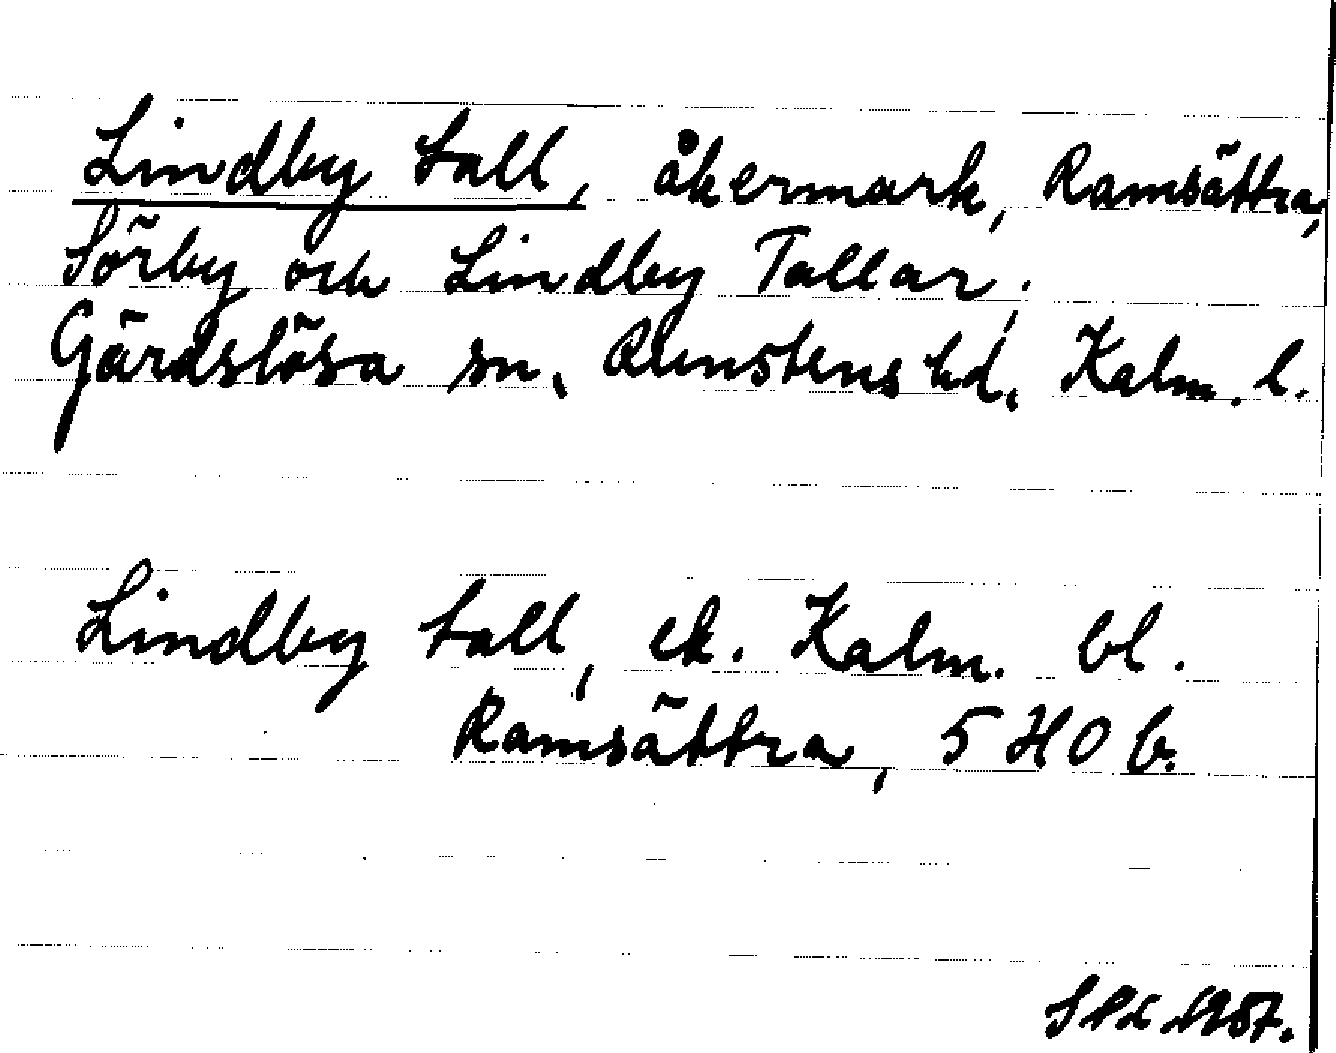 Lindby tall, åkermark, Ramsättra,
Sörby och Lindby Tallar,
Gärdslösa sn, Runstens hd, Kalm. l.
Lindby tall, ek. Kalm. bl.
Ramsättra, 5 H 0 b.
1957.